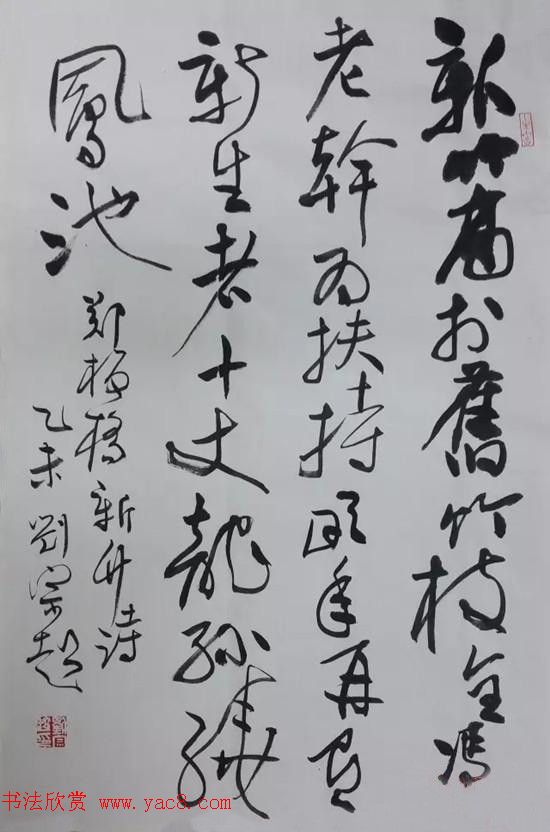 新竹高於舊竹枝全憑
老幹為扶持明年再有
新生者十丈龍孫繞
鳳池
鄭板橋新竹詩
乙未劉宗超
书法欣赏 www.yac8.com